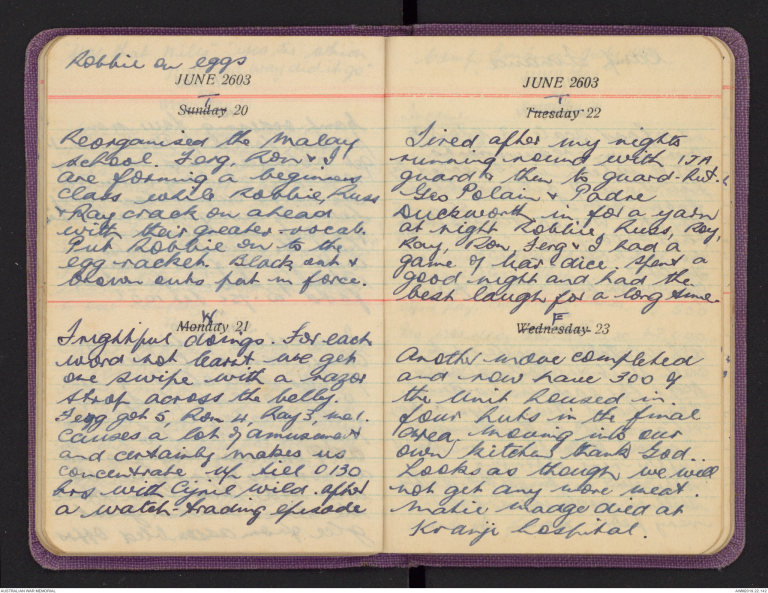 Robbie on eggs
JUNE 2603
T
Sunday 20
Reorganised the Malay
school. Ferg, Ron & I
are forming a beginners
class while Robbie, Russ
& Ray crack on ahead
with their greater vocab.
Put Robbie on to the
egg racket. Black out &
brown outs put in force.
W
Monday 21
Frightful doings. For each
word not learnt we get
one swipe with a razor
strop across the belly.
Ferg got 5, Ron 4, Ray 3, me 1.
Causes a lot of amusement
and certainly makes us
concentrate. Up till 0130
hrs with Cyril Wild after
a watch-trading episode
JUNE 2603
T
Tuesday 22
Tired after my nights
running round with IJA
guard & then to guard-hut.
Geo Polain & Padre
Duckworth in for a yarn
at night Robbie, Russ, Roy,
Ray, Ron, Ferg & I had a
game of liar dice. Spent a
good night and had the
best laugh for a long time.
F
Wednesday 23
Another move completed
and now have 300 of
the Unit housed in
four huts in the final
area, moving into our
own kitchen thank God.
Looks as though we will
not get any more meat.
Matie Madge died at
Kranji hospital.
AUSTRALIAN WAR MEMORIAL